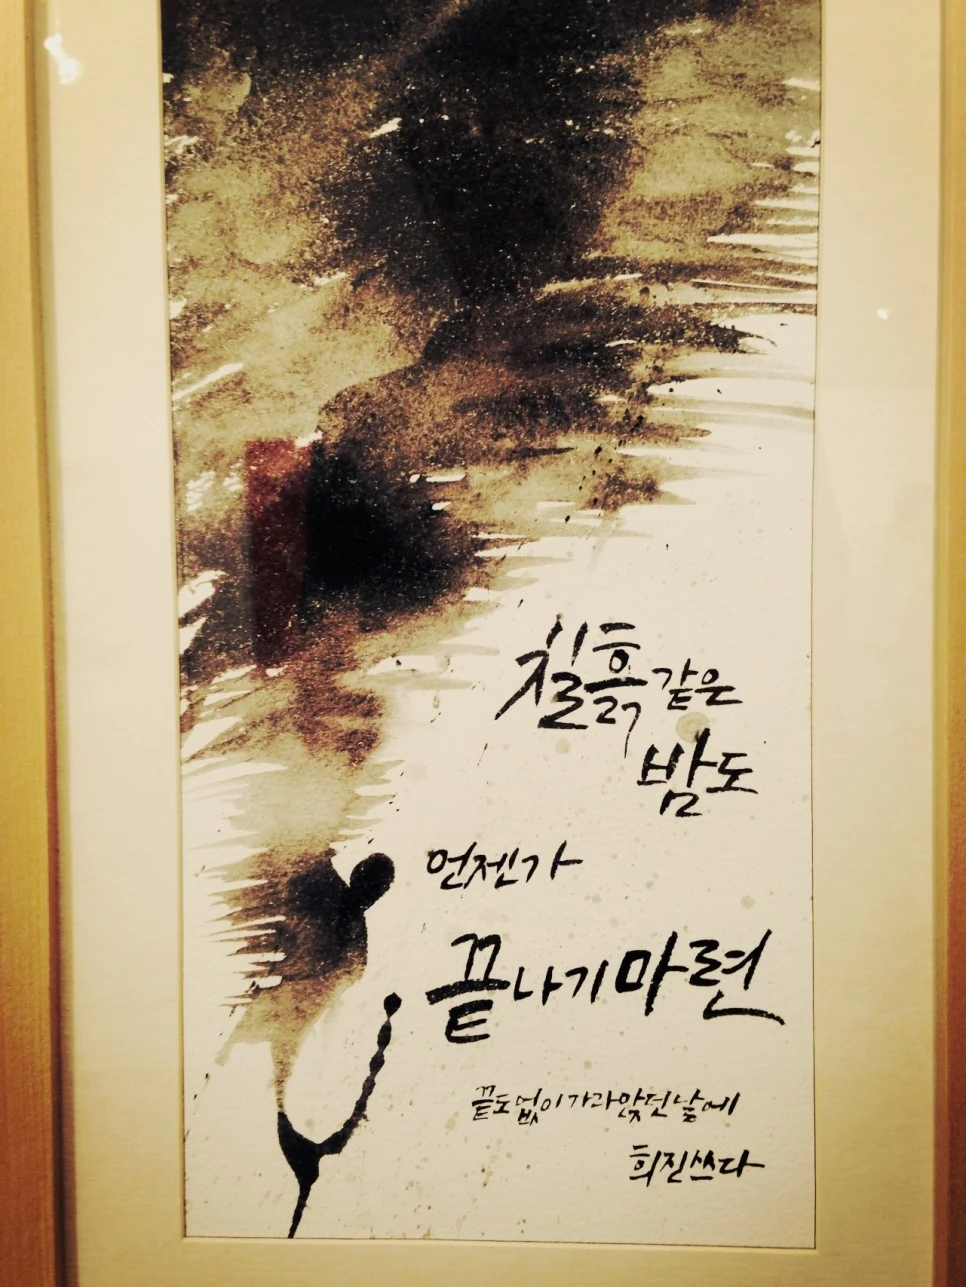 칠흙같은
밤도
언젠가
끝나기마련
끝도없이가라앉던날에
희진쓰다